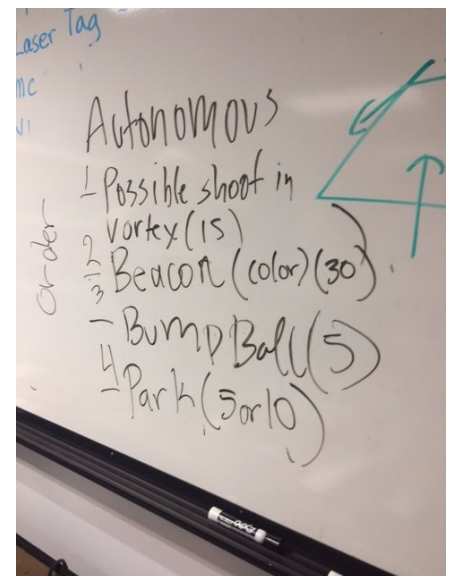 Laser Tag
mc
Autonomous
1 Possible shoot in
vortex (15)
2 Beacon (color) (30)
3 Bump Ball (5)
4 Park (5 or 10)
order
EXPO